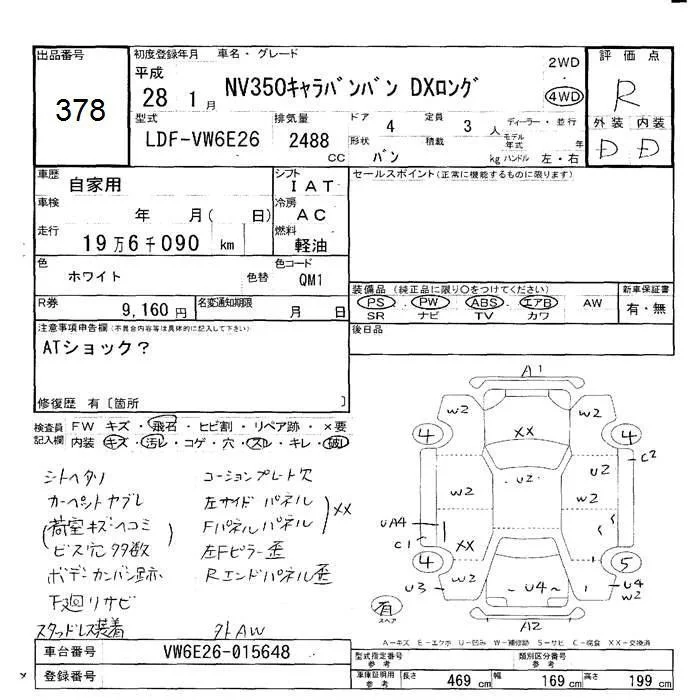 出品番号
378
初度登録年月 車名・グレード
平成
28 1月
NV350キャラバンバン DXロング
2WD
4WD
評価点
R
外装 内装
D D
型式
LDF-VW6E26
排気量
2488
CC
ドア 4
定員 3 人
形状 バン
積載 kg
ディーラー・並行
モデル年式 年
ハンドル 左・右
車歴 自家用
シフト IAT
車検 年 月( 日)
冷房 AC
走行 19万6千090 km
燃料 軽油
色 ホワイト 色替
色コード QM1
R券 9,160円
名変通知期限 月 日
セールスポイント(正常に機能するものに限ります)
装備品(純正品に限り○をつけてください)
PS PW ABS エアB AW
SR ナビ TV カワ
新車保証書
有・無
後日品
注意事項申告欄(不具合内容等は具体的に記入して下さい)
ATショック?
修復歴 有〔箇所 〕
検査員記入欄
FW キズ・飛石・ヒビ割・リペア跡・×要
内装 キズ・汚レ・コゲ・穴・スレ・キレ・破レ
シートヘタリ
カーペットヤブレ
(荷室キズヘコミ
ビス穴多数)
ボデーカンバン跡
下廻りサビ
スタッドレス装着
コーションプレート欠
左サイドパネル
Fパネルパネル
XX
左Fピラー歪
Rエンドパネル歪
外AW
A1
W2 W2
4 XX 4
C2
W2 U2 U2 W2
UA4
C1
XX
4 5
U3 W2 U4 U4 W2
有
スペア
A2
A-キズ E-エクボ U-凹み W-補修跡 S-サビ C-腐食 XX-交換済
車台番号 VW6E26-015648
登録番号
型式指定番号 参考
類別区分番号 参考
車庫証明用 参考
長さ 469 cm 幅 169 cm 高さ 199 cm